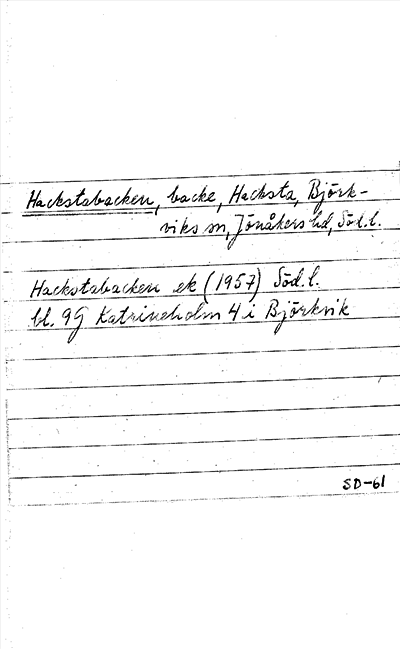 Hackstabacken, backe, Hacksta, Björk-
viks sn, Jönåkers hd, Söd.l.
Hackstabacken ek (1957) Söd.l.
bl. 9G Katrineholm 4 i Björkvik
SD-61